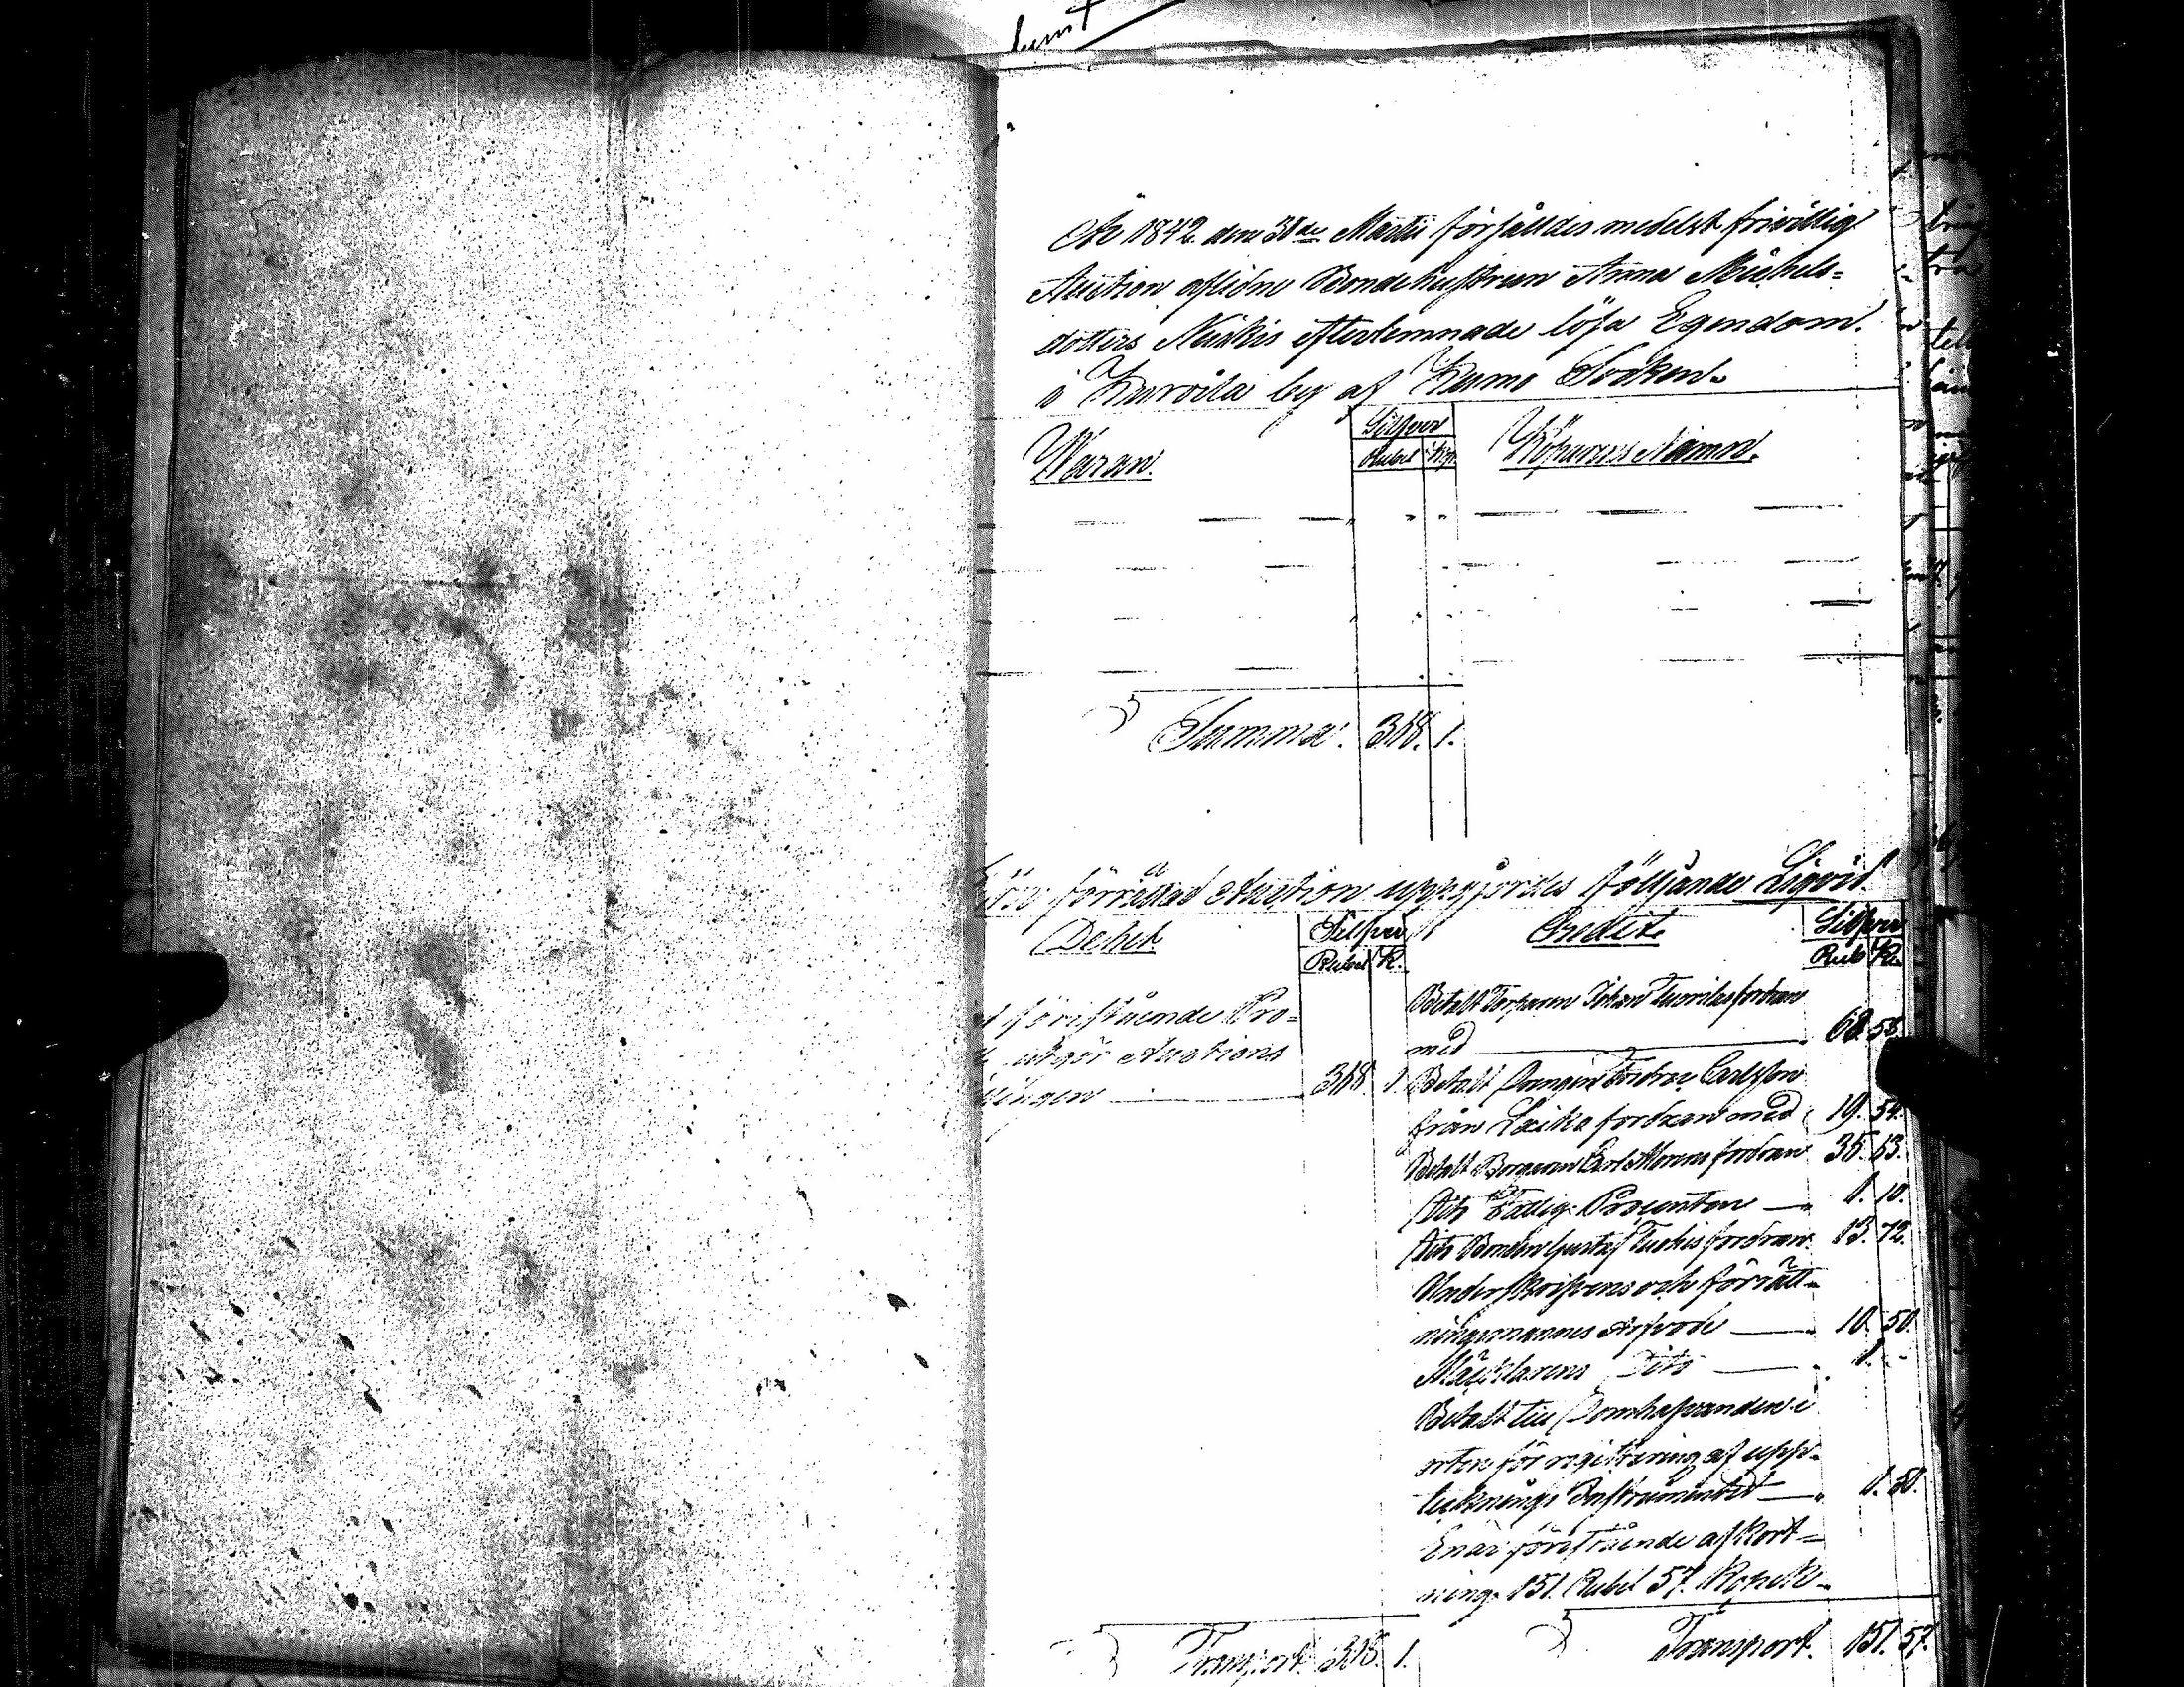 År 1842 den 31de Martii försålldes medelst frivillig
Auction aflidne Bondehustrun Anna Michels=
dotters Neukis efterlemnade lösa Egendom
i Kurvila by af Kumo Socken.
Waran.
Silfver
Rubel
Kop.
Köparens Namn.
Summa. 318. 1.
förrättad Auction uppgjordes följande Liqvid.
Debet.
Silfver
Rubel K.
Credit.
Silfver
Rub K.
förestående Pro=
utgör Auctions
318. 1.
Betalt Torparen Johan fordran
med 68. 58.
Betalt Drengen Carlsson
från Laika fordran med 19. 54.
Betalt Borgaren Carl fordran 35. 63.
Dito Fattig Procenten 1. 10.
Dito Bonden Gustaf fordran 13. 72.
Underskrifvens och förrätt=
ningsmannes Arfvode 10. 50.
Mäcklarens Dito 1. -
Betalt till Domhafvanden i
orten för registrering af upp=
tecknings Instrumentet 1. 50.
Enär förestående afkort=
ning. 151. Rubel 57. Kopek
Transport. 318. 1.
Transport. 151. 57.